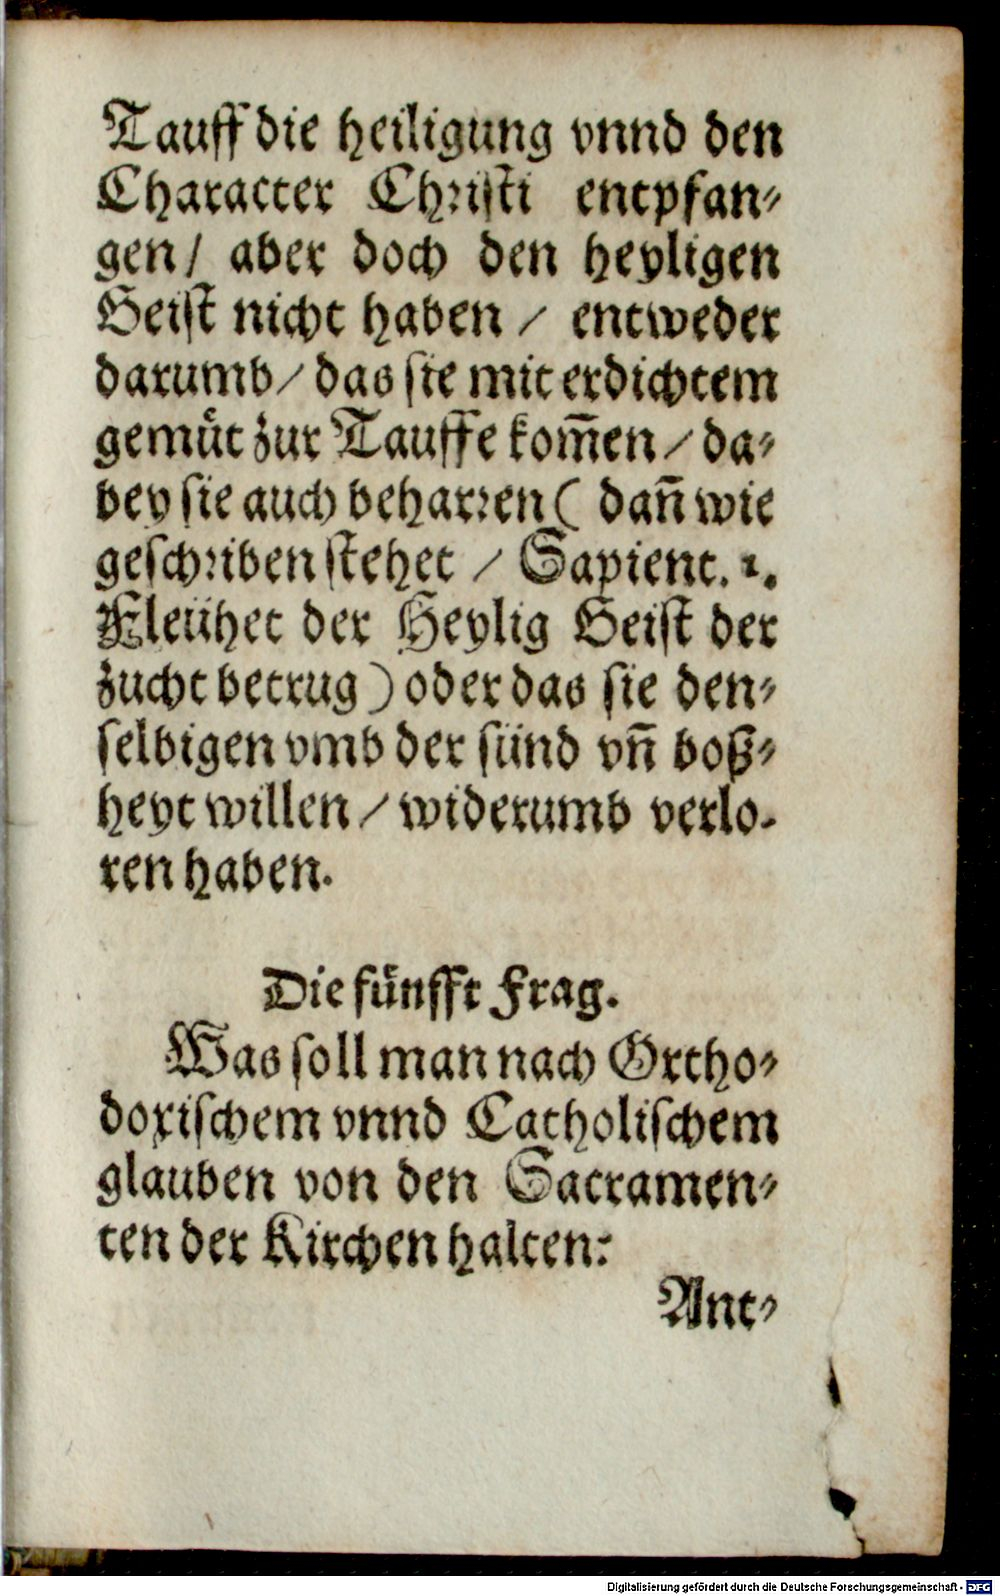 Tauff die heiligung vnnd den
Character Christi entpfan-
gen / aber doch den heyligen
Geist nicht haben / entweder
darumb / das sie mit erdichtem
gemüt zur Tauffe kom̄en / da-
bey sie auch beharren ( dan̄ wie
geschriben stehet / Sapient. 1.
Fleühet der Heylig Geist der
zucht betrug ) oder das sie den-
selbigen vmb der sünd vn̄ boß-
heyt willen / widerumb verlo-
ren haben.
Die fünfft Frag.
Was soll man nach Ortho-
doxischem vnnd Catholischem
glauben von den Sacramen-
ten der Kirchen halten:
Ant-
Digitalisierung gefördert durch die Deutsche Forschungsgemeinschaft - DFG